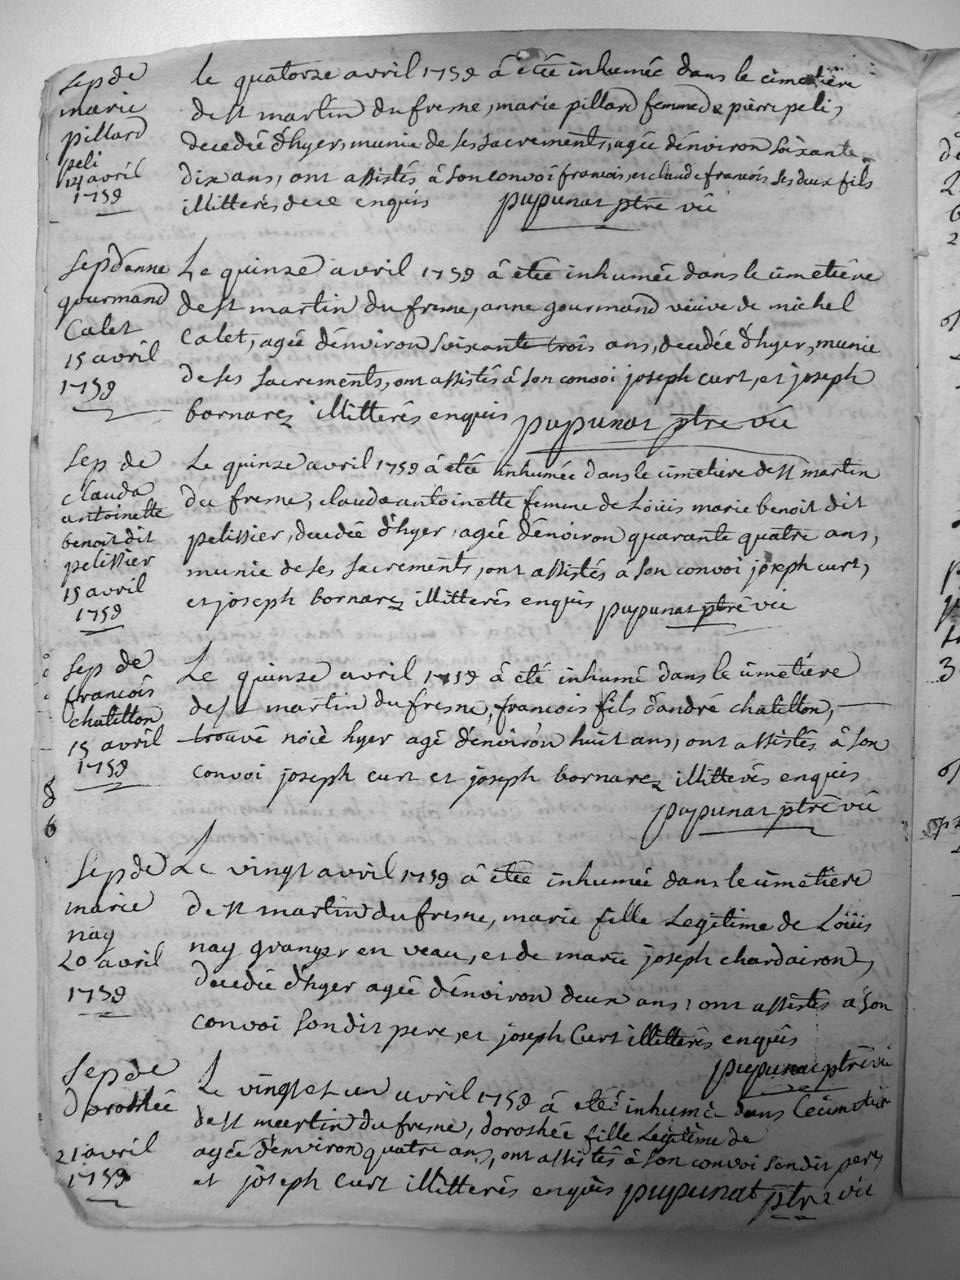 Sep de
marie
pillard
peli
14 avril
1759
le quatorze avril 1759 â étée inhumée dans le cimetière
de st martin du fresne, marie pillard femme de pierre peli,
decedée d'hyer, munie de ses sacrements, agée d'environ soixante
dix ans, ont assistés â son convoi francois, et claude francois ses deux fils
illitterés de ce enquis pupunat ptre vic
Sep d'anne
gourmand
Calet
15 avril
1759
Le quinze avril 1759 â étée inhumée dans le cimetière
de st martin du fresne, anne gourmand veuve de michel
Calet, agée d'environ soixante trois ans, decedée d'hyer, munie
de ses sacrements, ont assistés â son convoi joseph curt, et joseph
bornarez illitterés enquis pupunat ptre vic
Sep de
clauda
antoinette
benoit dit
pelissier
15 avril
1759
Le quinze avril 1759 â étée inhumée dans le cimetière de st martin
du fresne, clauda antoinette femme de Loüis marie benoit dit
pelissier, decedée d'hyer, agée d'environ quarante quatre ans,
munie de ses sacrements, ont assistés â son convoi joseph curt,
et joseph bornarez illitterés enquis pupunat ptre vic
Sep de
francois
chatillon
15 avril
1759
Le quinze avril 1759 â été inhumé dans le cimetière
de st martin du fresne, francois fils d'andré chatillon,
trouvé noïé hyer agé d'environ huit ans, ont assistés â son
convoi joseph curt et joseph bornarez illitterés enquis
pupunat ptre vic
86
Sep de
marie
nay
20 avril
1759
Le vingt avril 1759 â étée inhumée dans le cimetière
de st martin du fresne, marie fille Legitime de Loüis
nay granger en veau, et de marie joseph chardairon,
decedée d'hyer agée d'environ deux ans, ont assistés â son
convoi son dit pere, et joseph Curt illitterés enquis
pupunat ptre vic
Sep de
dorothée
21 avril
1759
Le vingt et un avril 1759 â étée inhumée dans le cimetière
de st martin du fresne, dorothée fille Legitime de
agée d'environ quatre ans, ont assistés â son convoi son dit pere,
et joseph curt illitterés enquis pupunat ptre vic